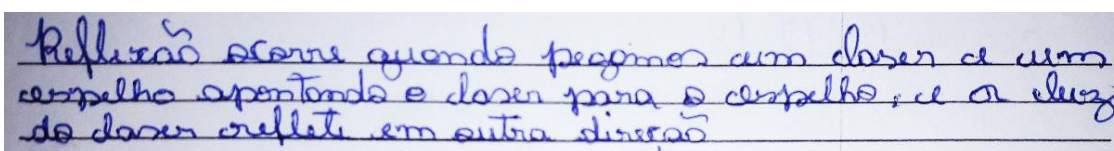 Reflexão ocorre quando pegamos um laser e um
espelho apontando o laser para o espelho, e a luz
do laser reflete em outra direção